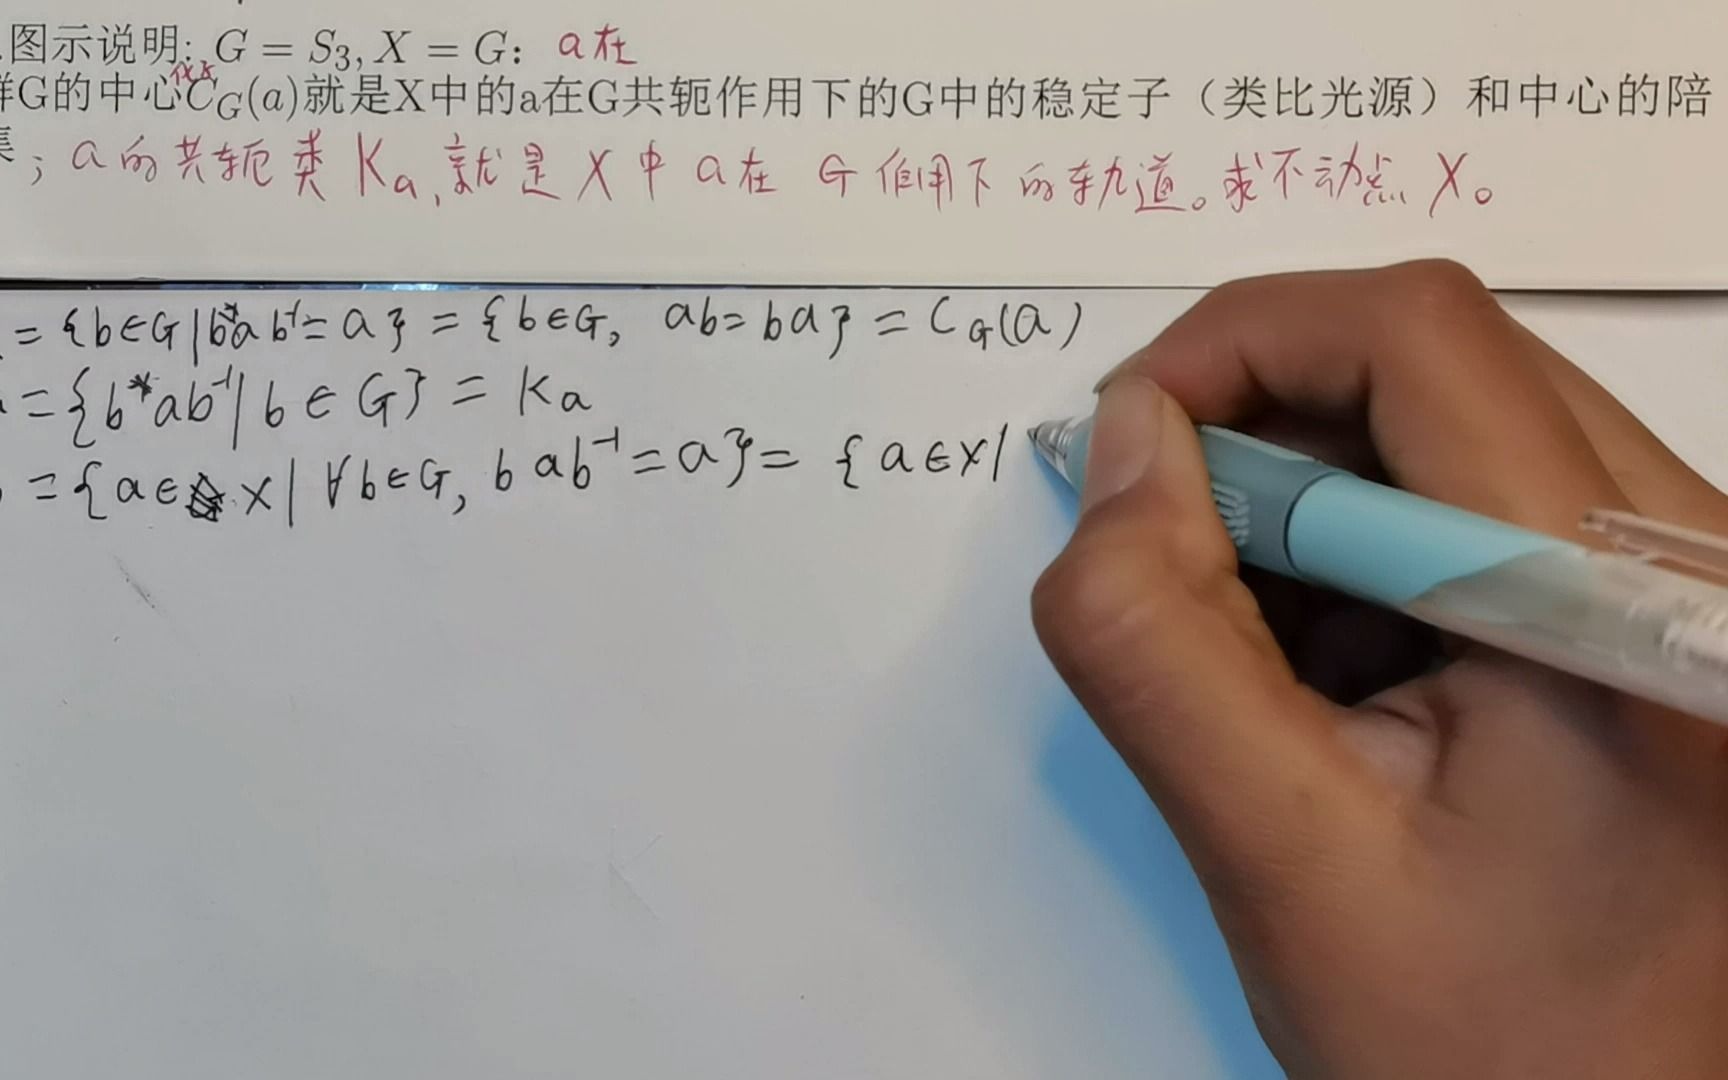 图示说明: G = S₃, X = G: a在
群G的中心化子C_G(a)就是X中的a在G共轭作用下的G中的稳定子（类比光源）和中心的陪
集; a的共轭类 Ka, 就是X中a在G作用下的轨道。求不动点 X₀
= {b∈G | b*ab⁻¹ = a} = {b∈G, ab = ba} = C_G(a)
= {b*ab⁻¹ | b∈G} = Ka
= {a∈X | ∀b∈G, bab⁻¹ = a} = {a∈X |